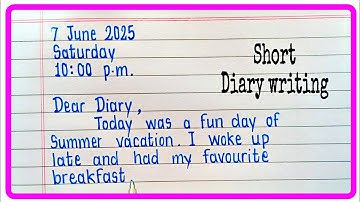 7 June 2025
Saturday
10:00 p.m.
Short
Diary writing
Dear Diary,
Today was a fun day of
Summer vacation. I woke up
late and had my favourite
breakfast